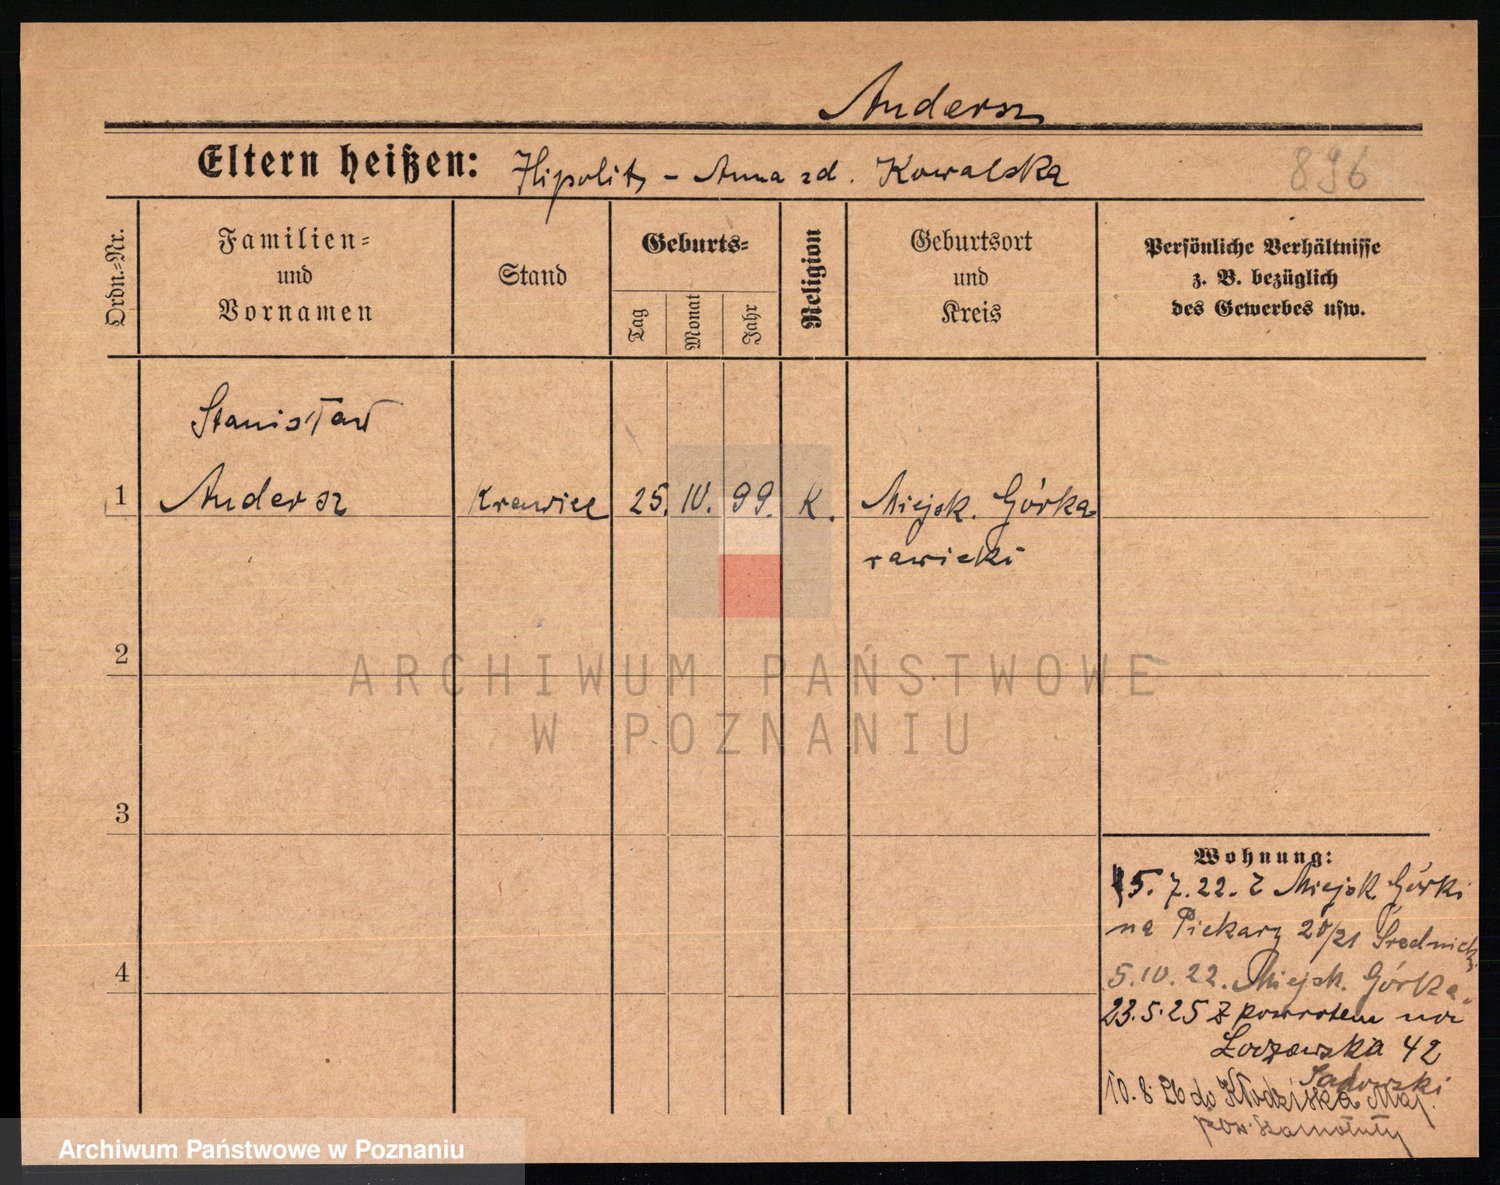 Andersz
Eltern heißen: Hipolit – Anna zd. Kowalska
896
Ordn.-Nr.
Familien-
und
Vornamen
Stand
Geburts-
Tag
Monat
Jahr
Religion
Geburtsort
und
Kreis
Persönliche Verhältnisse
z. B. bezüglich
des Gewerbes usw.
Stanisław
1 Andersz Krawiec 25. IV. 99. K. Miejsk. Górka
rawicki
2
3
4
Wohnung:
5. 7. 22. z Miejsk. Górki
na Piekary 20/21 Średnicki
5. IV. 22. Miejsk. Górka.
23. 5. 25 z powrotem na
42
Sadowski
10. 8. 26 do Kłodziska Maj.
pow. Szamotuły
ARCHIWUM PAŃSTWOWE
W POZNANIU
Archiwum Państwowe w Poznaniu